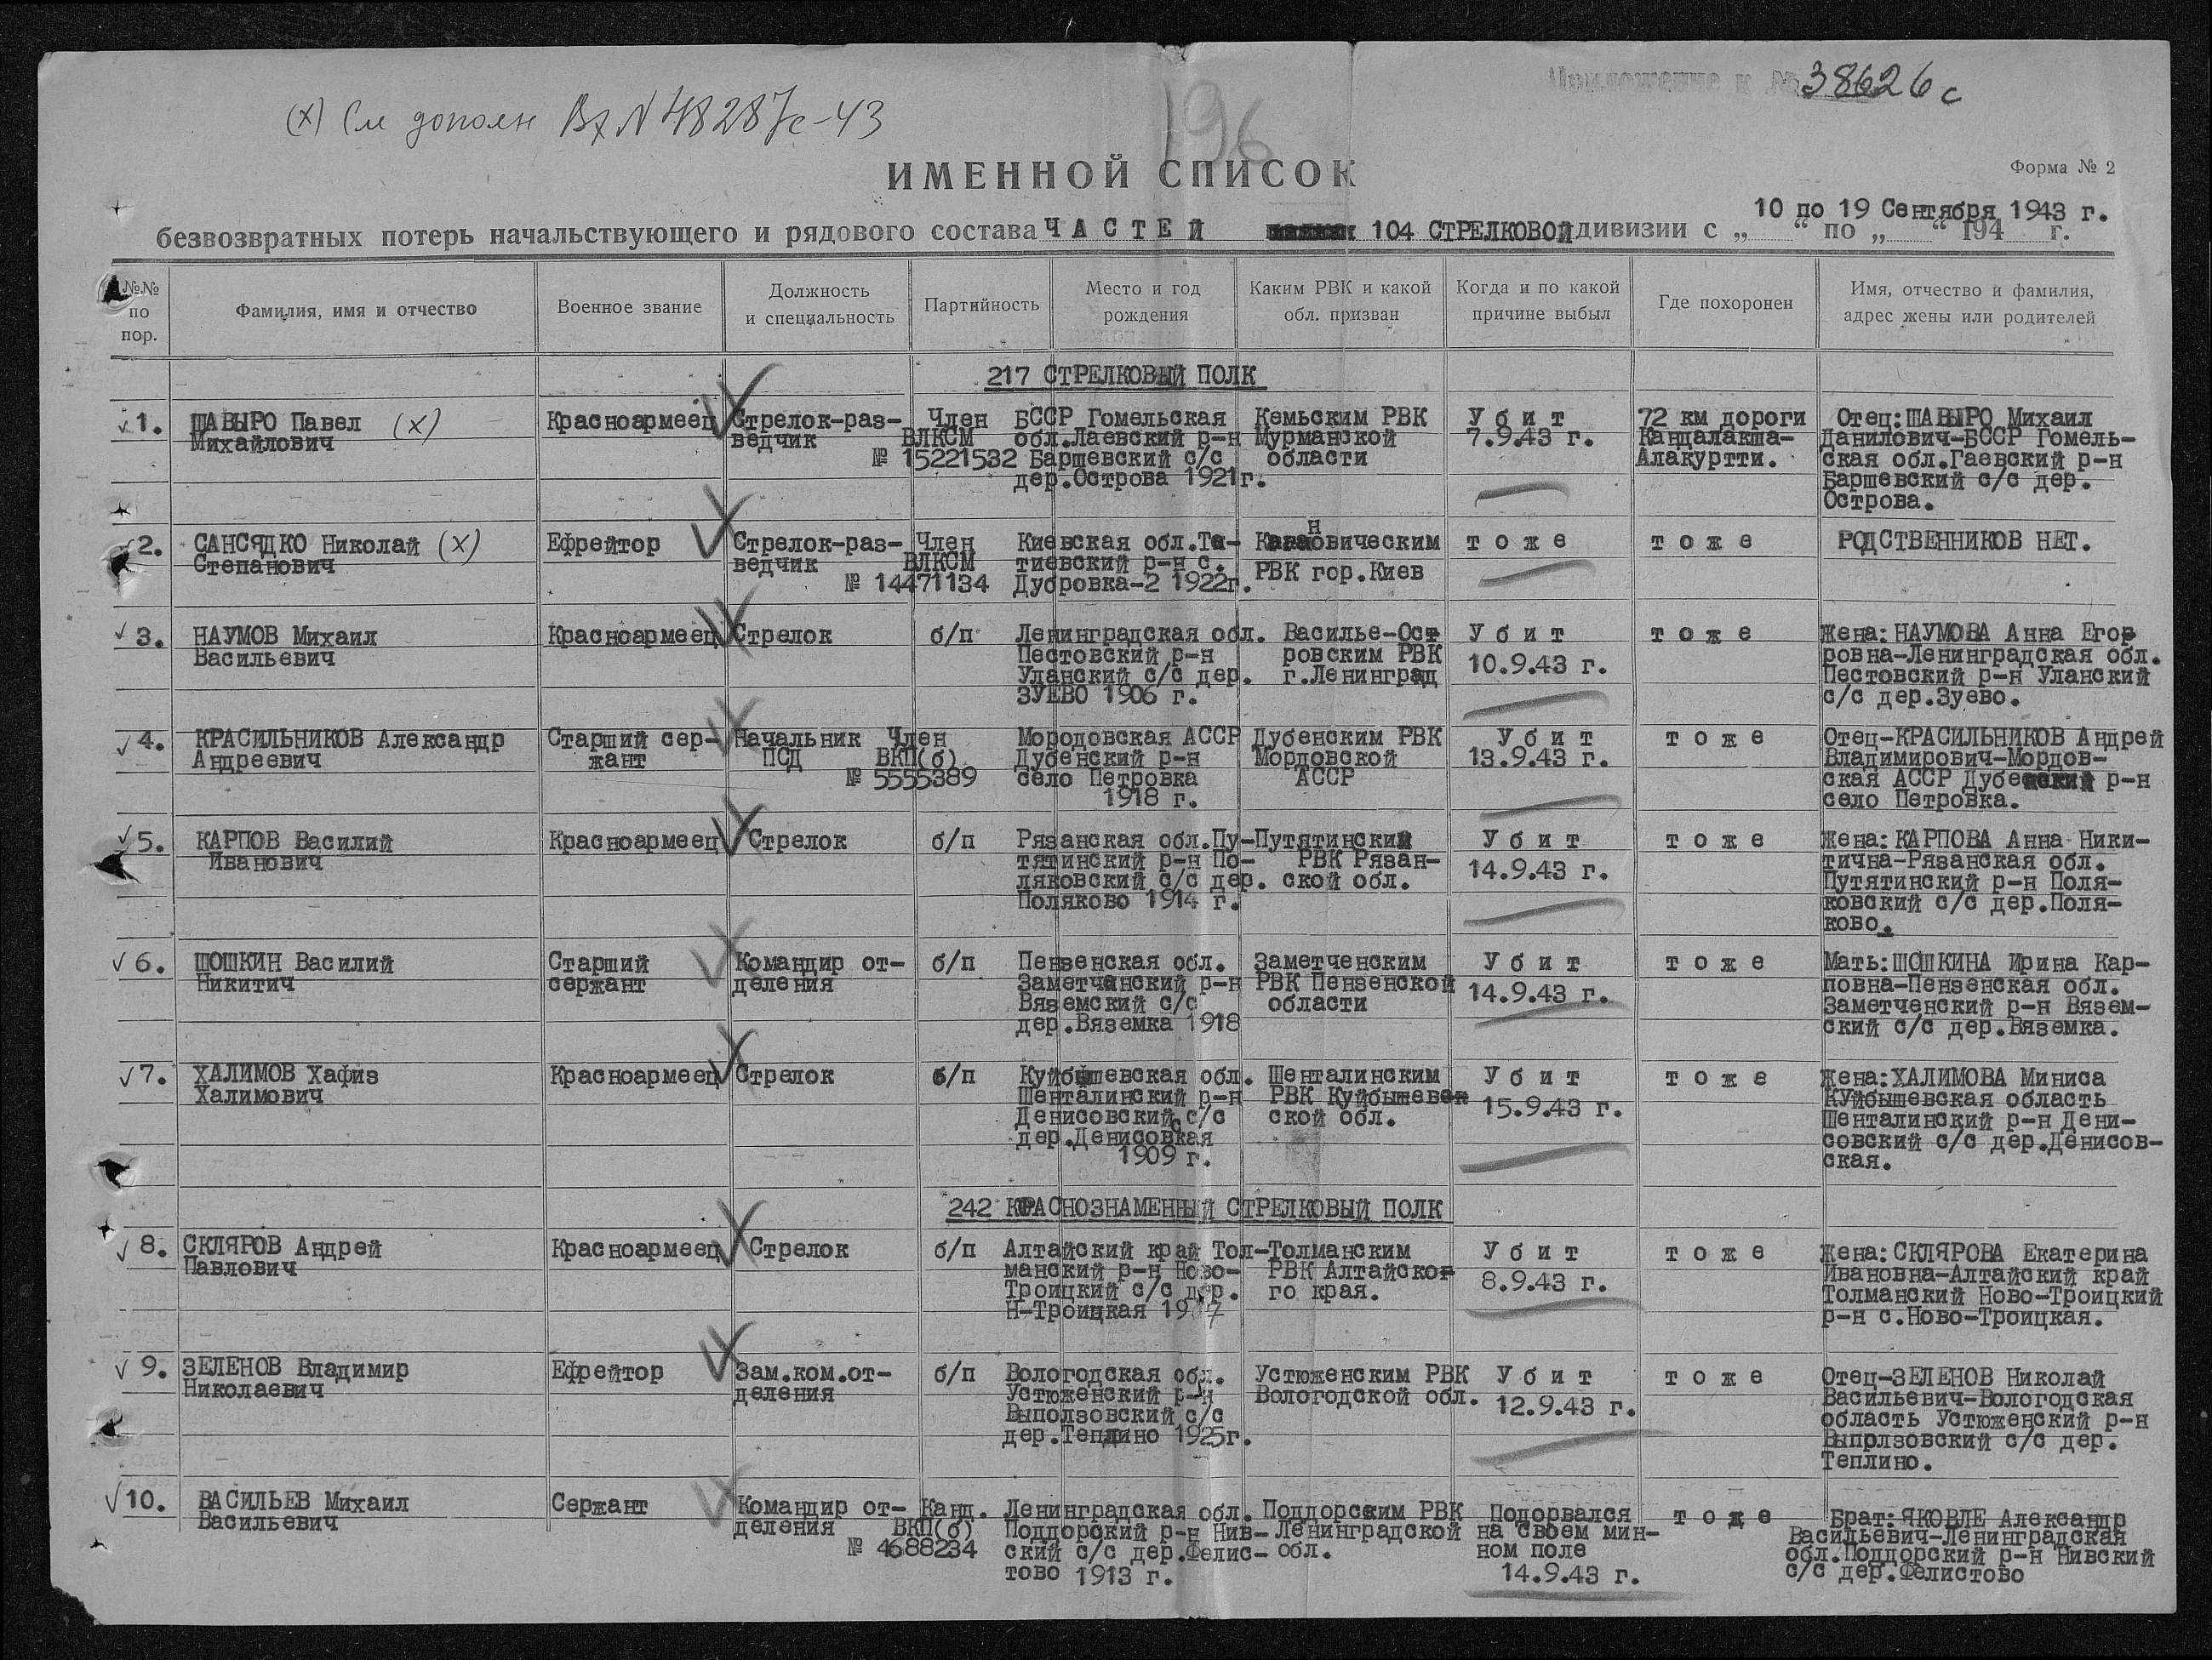 Приложение к № 38626с
(х) См дополн Вх N 48287с-43
196
ИМЕННОЙ СПИСОК
Форма № 2
10 по 19 Сентября 1943 г.
безвозвратных потерь начальствующего и рядового состава ЧАСТЕЙ 104 СТРЕЛКОВОЙ дивизии с „ “ по „ “ 194 г.
№№ по пор.
Фамилия, имя и отчество
Военное звание
Должность и специальность
Партийность
Место и год рождения
Каким РВК и какой обл. призван
Когда и по какой причине выбыл
Где похоронен
Имя, отчество и фамилия, адрес жены или родителей
217 СТРЕЛКОВЫЙ ПОЛК
1. ШАВЫРО Павел (х) Красноармеец Стрелок-раз- Член БССР Гомельская Кемьским РВК Убит 72 км дороги Отец:ШАВЫРО Михаил
Михайлович ведчик ВЛКСМ обл.Лаевский р-н Мурманской 7.9.43 г. Кандалакша- Данилович-БССР Гомель-
№ 15221532 Баршевский с/с области Алакуртти. ская обл.Гаевский р-н
дер.Острова 1921г. Баршевский с/с дер.
Острова.
2. САНСЯДКО Николай (х) Ефрейтор Стрелок-раз- Член Киевская обл.Те- Кагановическим тоже тоже РОДСТВЕННИКОВ НЕТ.
Степанович ведчик ВЛКСМ тиевский р-н с. РВК гор.Киев
№ 14471134 Дубровка-2 1922г.
3. НАУМОВ Михаил Красноармеец Стрелок б/п Ленинградская обл. Василье-Ост Убит тоже Жена:НАУМОВА Анна Егор
Васильевич Пестовский р-н ровским РВК 10.9.43 г. ровна-Ленинградская обл.
Уланский с/с дер. г.Ленинград Пестовский р-н Уланский
ЗУЕВО 1906 г. с/с дер.Зуево.
4. КРАСИЛЬНИКОВ Александр Старший сер- Начальник Член Мородовская АССР Дубенским РВК Убит тоже Отец-КРАСИЛЬНИКОВ Андрей
Андреевич жант ПСД ВКП(б) Дубенский р-н Мордовской 13.9.43 г. Владимирович-Мордов-
№ 5555389 село Петровка АССР ская АССР Дубенский р-н
1918 г. село Петровка.
5. КАРПОВ Василий Красноармеец Стрелок б/п Рязанская обл.Пу- Путятинский Убит тоже Жена:КАРПОВА Анна Ники-
Иванович тятинский р-н По- РВК Рязан- 14.9.43 г. тична-Рязанская обл.
ляковский с/с дер. ской обл. Путятинский р-н Поля-
Поляково 1914 г. ковский с/с дер.Поля-
ково.
6. ШОШКИН Василий Старший Командир от- б/п Пензенская обл. Заметченским Убит тоже Мать:ШОШКИНА Ирина Кар-
Никитич сержант деления Заметчанский р-н РВК Пензенской 14.9.43 г. повна-Пензенская обл.
Вяземский с/с области Заметченский р-н Вязем-
дер.Вяземка 1918 ский с/с дер.Вяземка.
7. ХАЛИМОВ Хафиз Красноармеец Стрелок б/п Куйбышевская обл. Шенталинским Убит тоже Жена:ХАЛИМОВА Миниса
Халимович Шенталинский р-н РВК Куйбышевск 15.9.43 г. Куйбышевская область
Денисовский с/с ской обл. Шенталинский р-н Дени-
дер.Денисовская совский с/с дер.Денисов-
1909 г. ская.
242 КРАСНОЗНАМЕННЫЙ СТРЕЛКОВЫЙ ПОЛК
8. СКЛЯРОВ Андрей Красноармеец Стрелок б/п Алтайский край Тол- Толманским Убит тоже Жена:СКЛЯРОВА Екатерина
Павлович манский р-н Ново- РВК Алтайског 8.9.43 г. Ивановна-Алтайский край
Троицкий с/с дер. го края. Толманский Ново-Троицкий
Н-Троицкая р-н с.Ново-Троицкая.
9. ЗЕЛЕНОВ Владимир Ефрейтор Зам.ком.от- б/п Вологодская обл. Устюженским РВК Убит тоже Отец-ЗЕЛЕНОВ Николай
Николаевич деления Устюженский р-н Вологодской обл. 12.9.43 г. Васильевич-Вологодская
Выползовский с/с область Устюженский р-н
дер.Теплино 1925г. Выпрлзовский с/с дер.
Теплино.
10. ВАСИЛЬЕВ Михаил Сержант Командир от- Канд. Ленинградская обл. Поддорским РВК Подорвался тоже Брат:ЯКОВЛЕ Александр
Васильевич деления ВКП(б) Поддорский р-н Нив- Ленинградской на своем мин- Васильевич-Ленинградская
№ 4688234 ский с/с дер.Фелис- обл. ном поле обл.Поддорский р-н Нивский
тово 1913 г. 14.9.43 г. с/с дер.Фелистово